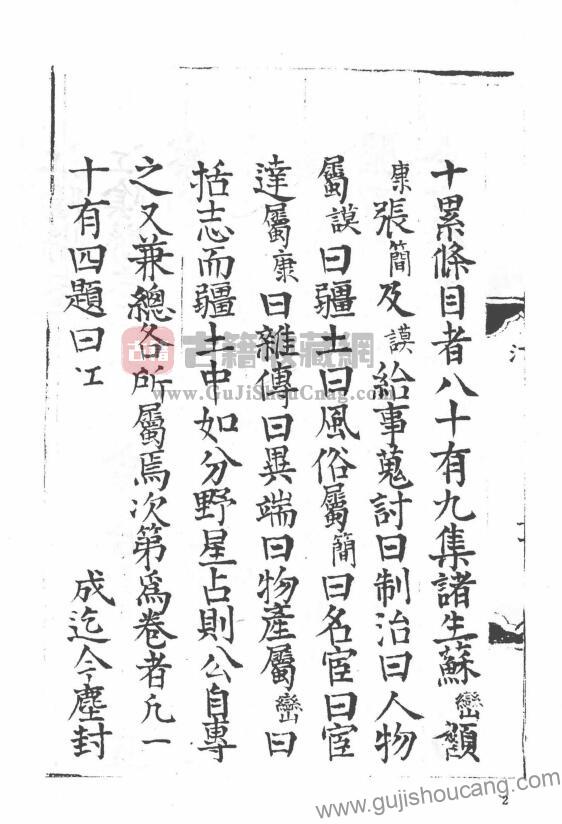 十累條目者八十有九集諸生蘇巒
康張簡及謨給事蒐討曰制治曰人物
屬謨曰疆土曰風俗屬簡曰名宦曰宦
達屬康曰雜傳曰異端曰物產屬巒曰
括志而疆土中如分野星占則公自專
之又兼總各所屬焉次第爲卷者凡一
十有四題曰江 成迄今塵封
古籍
古籍收藏網
www.GuJiShouCnag.com
2
www.gujishoucang.com